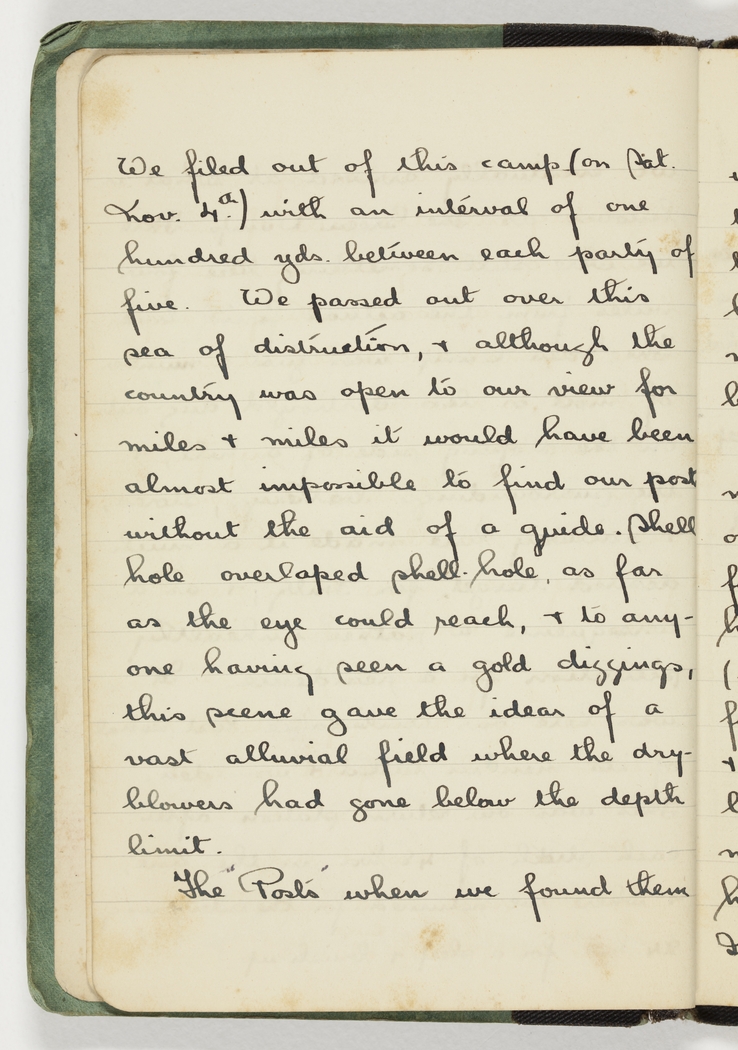 We filed out of this camp (on Sat.
Nov. 4th.) with an interval of one
hundred yds. between each party of
five. We passed out over this
sea of distruction, + although the
country was open to our view for
miles + miles it would have been
almost impossible to find our post
without the aid of a guide. Shell
hole overlaped shell-hole, as far
as the eye could reach, + to any-
one having seen a gold diggings,
this scene gave the idear of a
vast alluvial field where the dry-
blowers had gone below the depth
limit.
The "Posts" when we found them